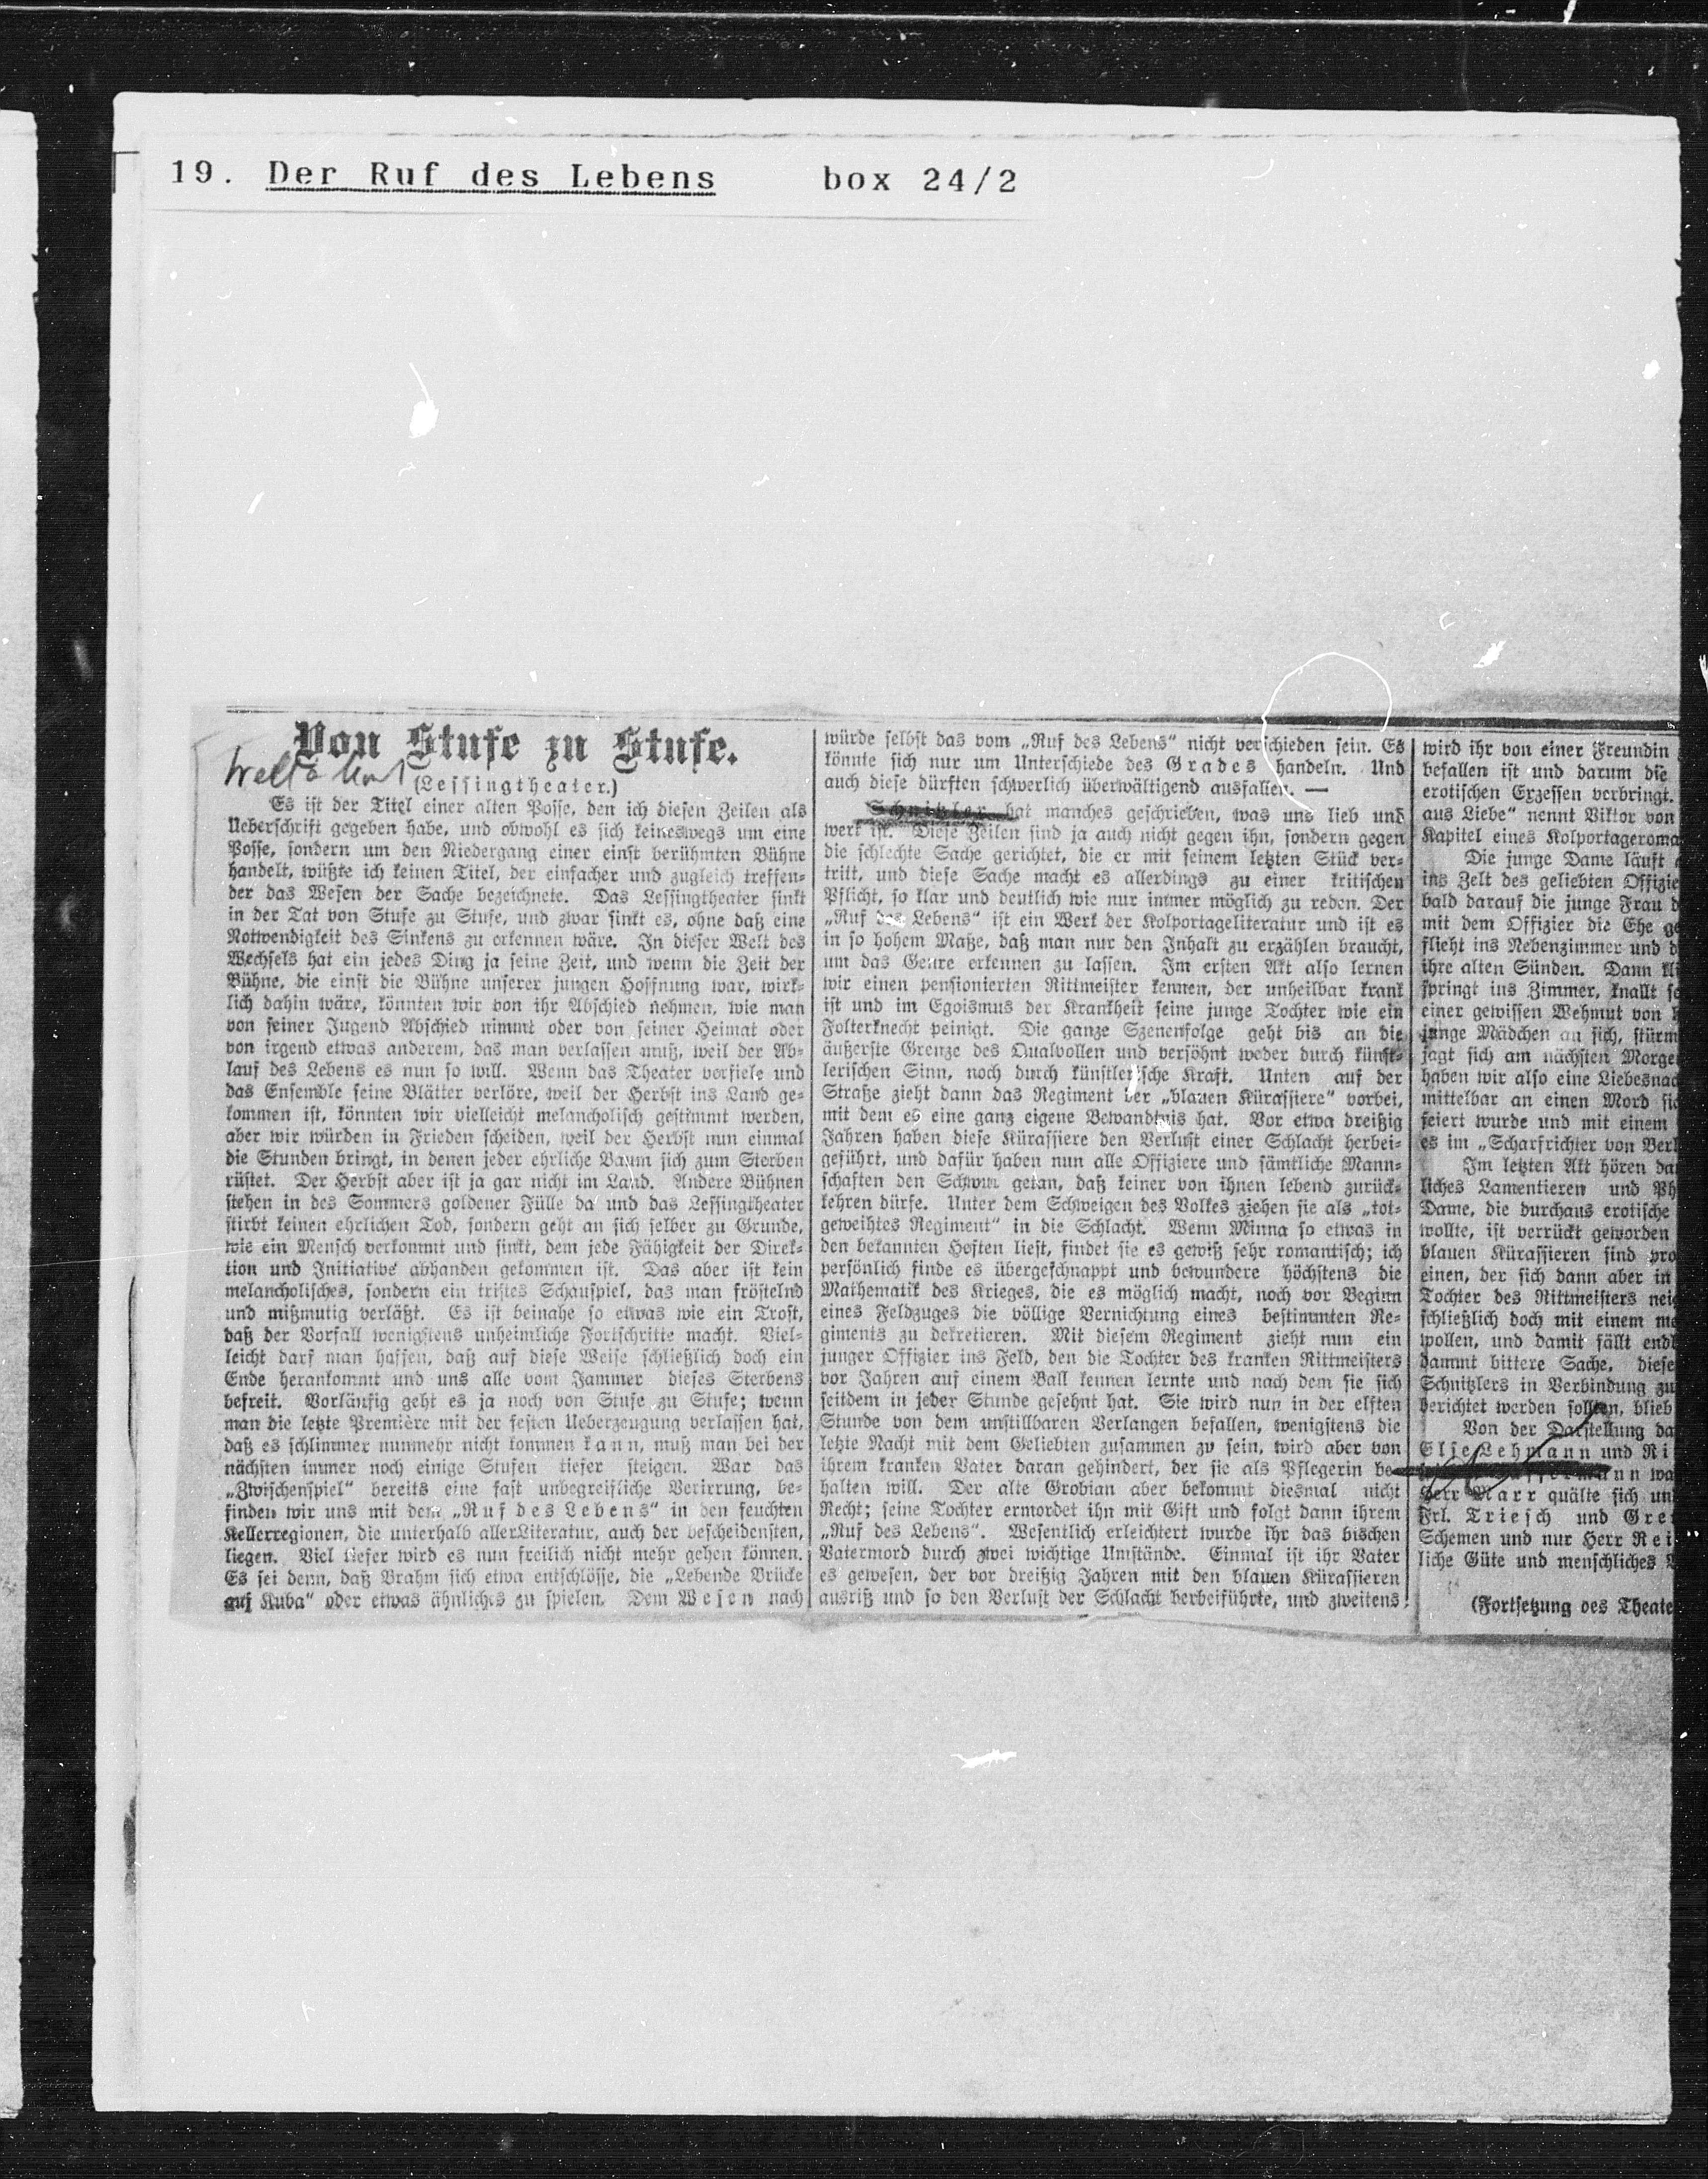 19. Der Ruf des Lebens box 24/2
Von Stufe zu Stufe.
(Lessingtheater.)
Es ist der Titel einer alten Posse, den ich diesen Zeilen als
Ueberschrift gegeben habe, und obwohl es sich keineswegs um eine
Posse, sondern um den Niedergang einer einst berühmten Bühne
handelt, wüßte ich keinen Titel, der einfacher und zugleich treffen-
der das Wesen der Sache bezeichnete. Das Lessingtheater sinkt
in der Tat von Stufe zu Stufe, und zwar sinkt es, ohne daß eine
Notwendigkeit des Sinkens zu erkennen wäre. In dieser Welt des
Wechsels hat ein jedes Ding ja seine Zeit, und wenn die Zeit der
Bühne, die einst die Bühne unserer jungen Hoffnung war, wirk-
lich dahin wäre, könnten wir von ihr Abschied nehmen, wie man
von seiner Jugend Abschied nimmt oder von seiner Heimat oder
von irgend etwas anderem, das man verlassen muß, weil der Ab-
lauf des Lebens es nun so will. Wenn das Theater verfiele und
das Ensemble seine Blätter verlöre, weil der Herbst ins Land ge-
kommen ist, könnten wir vielleicht melancholisch gestimmt werden,
aber wir würden in Frieden scheiden, weil der Herbst nun einmal
die Stunden bringt, in denen jeder ehrliche Baum sich zum Sterben
rüstet. Der Herbst aber ist ja gar nicht im Land. Andere Bühnen
stehen in des Sommers goldener Fülle da und das Lessingtheater
stirbt keinen ehrlichen Tod, sondern geht an sich selber zu Grunde,
wie ein Mensch verkommt und sinkt, dem jede Fähigkeit der Direk-
tion und Initiative abhanden gekommen ist. Das aber ist kein
melancholisches, sondern ein tristes Schauspiel, das man fröstelnd
und mißmutig verläßt. Es ist beinahe so etwas wie ein Trost,
daß der Vorfall wenigstens unheimliche Fortschritte macht. Viel-
leicht darf man hoffen, daß auf diese Weise schließlich doch ein
Ende herankommt und uns alle vom Jammer dieses Sterbens
befreit. Vorläufig geht es ja noch von Stufe zu Stufe; wenn
man die letzte Première mit der festen Ueberzeugung verlassen hat,
daß es schlimmer nunmehr nicht kommen kann, muß man bei der
nächsten immer noch einige Stufen tiefer steigen. War das
„Zwischenspiel“ bereits eine fast unbegreifliche Verirrung, be-
finden wir uns mit dem „Ruf des Lebens“ in den feuchten
Kellerregionen, die unterhalb aller Literatur, auch der bescheidensten,
liegen. Viel tiefer wird es nun freilich nicht mehr gehen können.
Es sei denn, daß Brahm sich etwa entschlösse, die „Lebende Brücke
auf Kuba“ oder etwas ähnliches zu spielen. Dem Wesen nach
würde selbst das vom „Ruf des Lebens“ nicht verschieden sein. Es
könnte sich nur um Unterschiede des Grades handeln. Und
auch diese dürften schwerlich überwältigend ausfallen. —
Schnitzler hat manches geschrieben, was uns lieb und
wert ist. Diese Zeilen sind ja auch nicht gegen ihn, sondern gegen
die schlechte Sache gerichtet, die er mit seinem letzten Stück ver-
tritt, und diese Sache macht es allerdings zu einer kritischen
Pflicht, so klar und deutlich wie nur immer möglich zu reden. Der
„Ruf des Lebens“ ist ein Werk der Kolportageliteratur und ist es
in so hohem Maße, daß man nur den Inhalt zu erzählen braucht,
um das Genre erkennen zu lassen. Im ersten Akt also lernen
wir einen pensionierten Rittmeister kennen, der unheilbar krank
ist und im Egoismus der Krankheit seine junge Tochter wie ein
Folterknecht peinigt. Die ganze Szenenfolge geht bis an die
äußerste Grenze des Qualvollen und versöhnt weder durch künst-
lerischen Sinn, noch durch künstlerische Kraft. Unten auf der
Straße zieht dann das Regiment der „blauen Kürassiere“ vorbei,
mit dem es eine ganz eigene Bewandtnis hat. Vor etwa dreißig
Jahren haben diese Kürassiere den Verlust einer Schlacht herbei-
geführt, und dafür haben nun alle Offiziere und sämtliche Mann-
schaften den Schwur getan, daß keiner von ihnen lebend zurück-
kehren dürfe. Unter dem Schweigen des Volkes ziehen sie als „tot-
geweihtes Regiment“ in die Schlacht. Wenn Minna so etwas in
den bekannten Heften liest, findet sie es gewiß sehr romantisch; ich
persönlich finde es übergeschnappt und bewundere höchstens die
Mathematik des Krieges, die es möglich macht, noch vor Beginn
eines Feldzuges die völlige Vernichtung eines bestimmten Re-
giments zu dekretieren. Mit diesem Regiment zieht nun ein
junger Offizier ins Feld, den die Tochter des kranken Rittmeisters
vor Jahren auf einem Ball kennen lernte und nach dem sie sich
seitdem in jeder Stunde gesehnt hat. Sie wird nun in der elften
Stunde von dem unstillbaren Verlangen befallen, wenigstens die
letzte Nacht mit dem Geliebten zusammen zu sein, wird aber von
ihrem kranken Vater daran gehindert, der sie als Pflegerin be-
halten will. Der alte Grobian aber bekommt diesmal nicht
Recht; seine Tochter ermordet ihn mit Gift und folgt dann ihrem
„Ruf des Lebens“. Wesentlich erleichtert wurde ihr das bischen
Vatermord durch zwei wichtige Umstände. Einmal ist ihr Vater
es gewesen, der vor dreißig Jahren mit den blauen Kürassieren
ausriß und so den Verlust der Schlacht herbeiführte, und zweitens
wird ihr von einer Freundin
befallen ist und darum die
erotischen Exzessen verbringt.
aus Liebe“ nennt Viktor von
Kapitel eines Kolportageroma
Die junge Dame läuft
ins Zelt des geliebten Offizie
bald darauf die junge Frau d
mit dem Offizier die Ehe ge
flieht ins Nebenzimmer und d
ihre alten Sünden. Dann kli
springt ins Zimmer, knallt se
einer gewissen Wehmut von
junge Mädchen an sich, stürm
jagt sich am nächsten Morge
haben wir also eine Liebesnac
mittelbar an einen Mord sic
feiert wurde und mit einem
es im „Scharfrichter von Berl
Im letzten Akt hören da
liches Lamentieren und Ph
Dame, die durchaus erotische
wollte, ist verrückt geworden
blauen Kürassieren sind pro
einen, der sich dann aber in
Tochter des Rittmeisters nei
schließlich doch mit einem me
wollen, und damit fällt endl
dammt bittere Sache, diese
Schnitzlers in Verbindung zu
berichtet werden sollten, blieb
Von der Darstellung da
Else Lehmann und Ri
nn wa
Herr Marr quälte sich un
Frl. Triesch und Gre
Schemen und nur Herr Rei
liche Güte und menschliches
(Fortsetzung des Theate